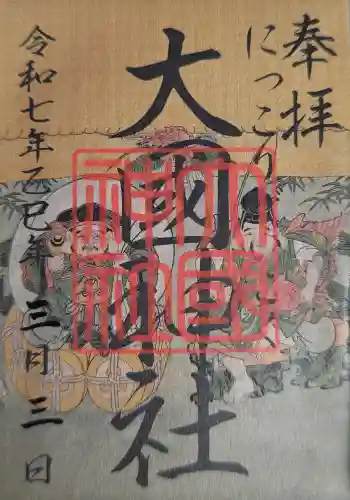 奉拝
にっこり
大國神社
令和七年乙巳年三月三日